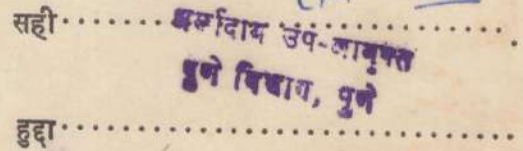 सही..............................
धर्मादाय उप-आयुक्त
पुणे विभाग, पुणे
हुद्दा..............................